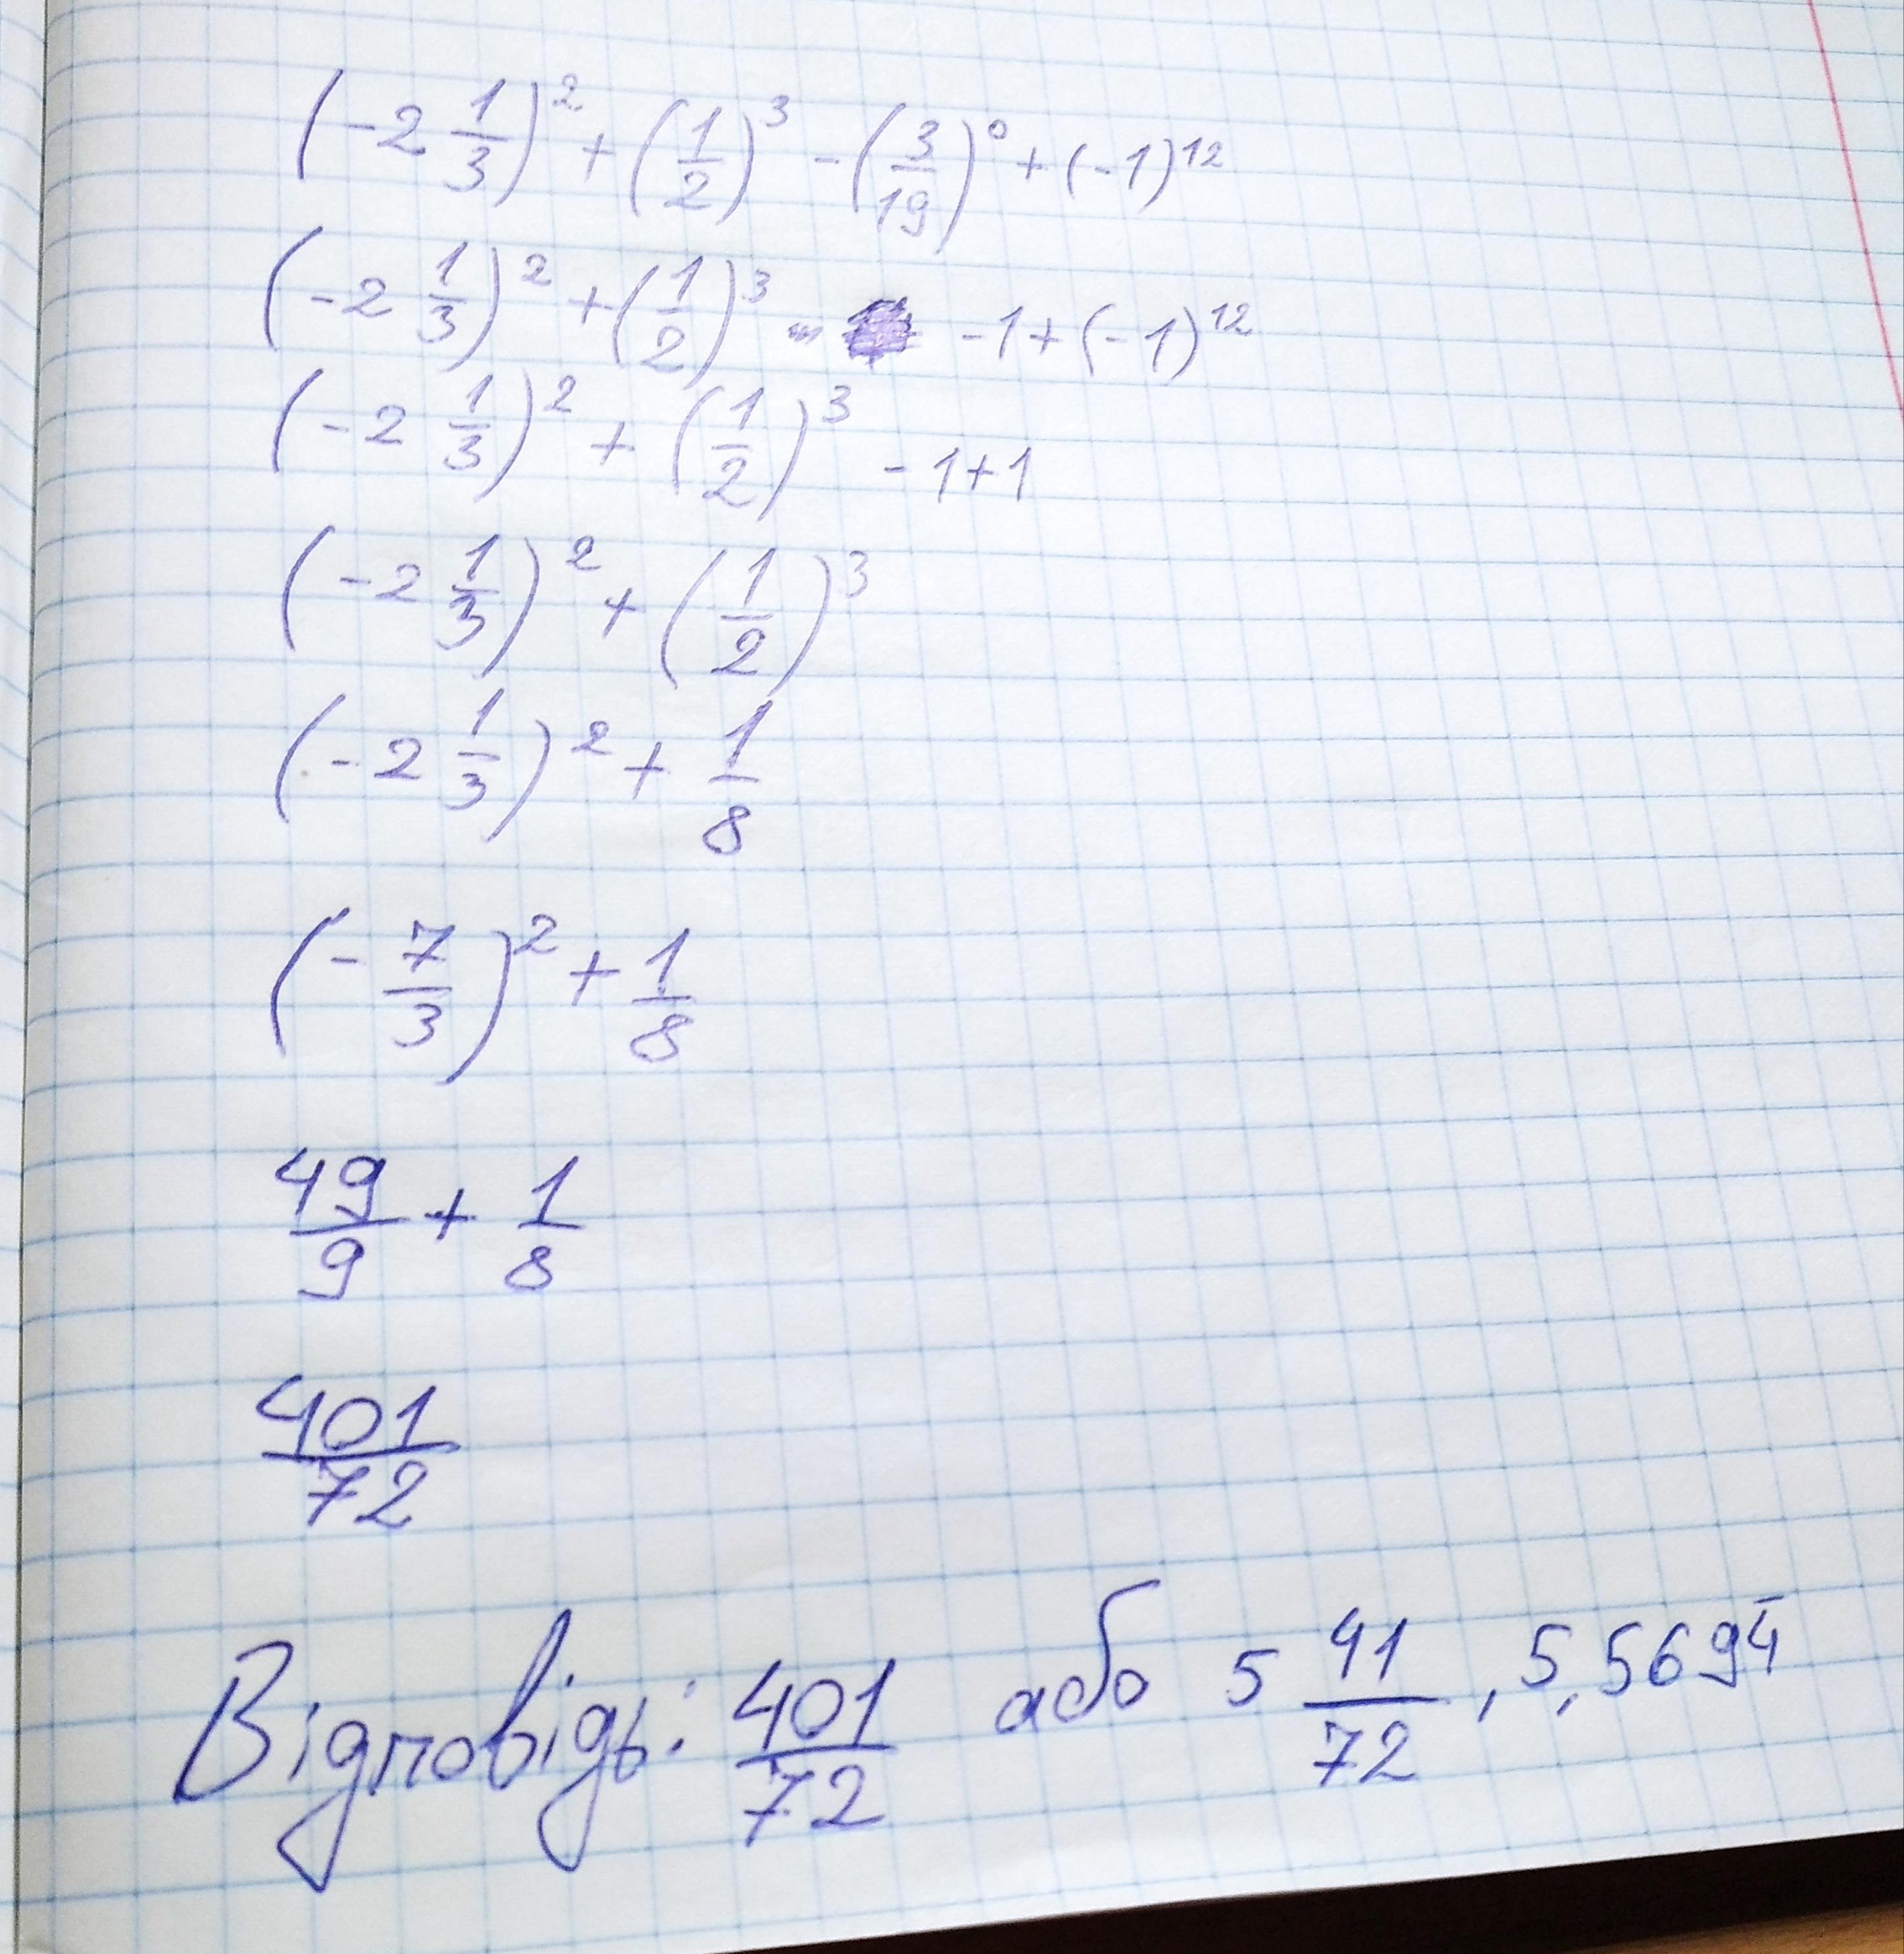 (-2 1/3)² + (1/2)³ - (3/19)⁰ + (-1)¹²
(-2 1/3)² + (1/2)³ - -1 + (-1)¹²
(-2 1/3)² + (1/2)³ - 1 + 1
(-2 1/3)² + (1/2)³
(-2 1/3)² + 1/8
(-7/3)² + 1/8
49/9 + 1/8
401/72
Відповідь: 401/72 або 5 41/72, 5,5694̅